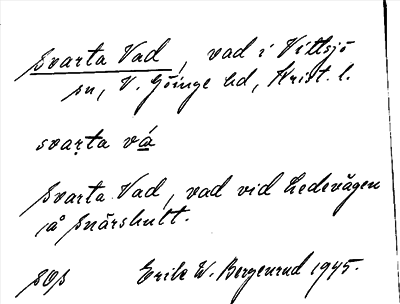 Svarta Vad, vad i Vittsjö
sn, V. Göinge hd, Krist. l.
svarta vá
Svarta Vad, vad vid Hedevägen
på Snärshult.
sOs Erik W. Bergenrud 1945.